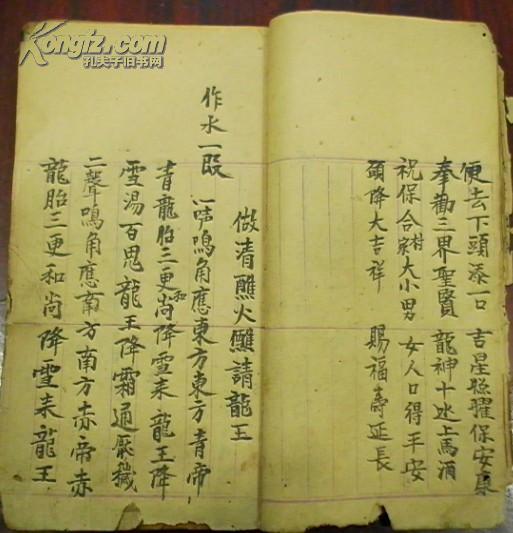 Kongfz.com
孔夫子旧书网
便去下頭添一口 吉星照耀保安康
奉勸三界聖賢 龍神十吅上馬酒
祝保合家村大小男 女人口得平安
頭降大吉祥 賜福壽延長
做清醮火醮請龍王
作水一段 一声鳴角應東方東方青帝
青龍胎三更和尚降雪来龍王降
雪湯百鬼龍王降霜通厭穢
二聲鳴角應南方南方赤帝赤
龍胎三更和尚降雪来龍王